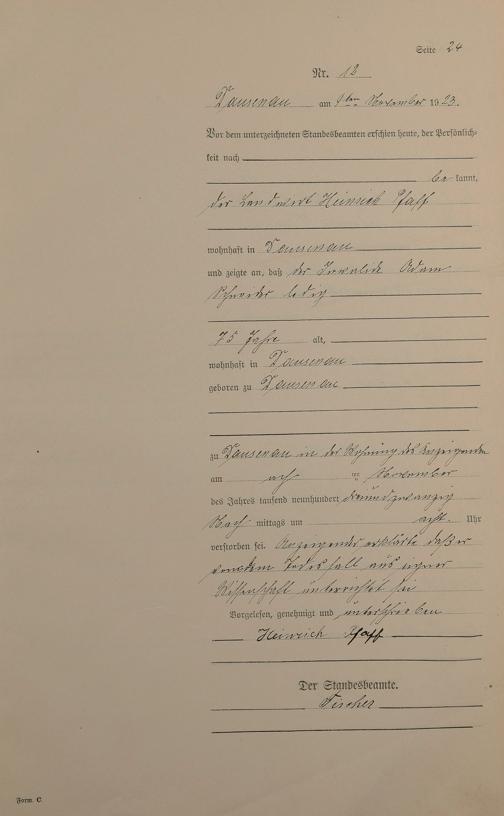 Seite 24
Nr. 12
Dausenau am 9ten November 1923.
Vor dem unterzeichneten Standesbeamten erschien heute, der Persönlich-
keit nach
be kannt,
der Landwirt Heinrich Pfaff
wohnhaft in Dausenau
und zeigte an, daß der Invalide Adam
Schneider ledig
75 Jahre alt,
wohnhaft in Dausenau
geboren zu Dausenau
zu Dausenau in der Wohnung des Anzeigenden
am November
des Jahres tausend neunhundert dreiundzwanzig
Nach mittags um acht Uhr
verstorben sei. Anzeigender erklärte daß er
von dem Todesfall aus eigner
Wissenschaft unterrichtet sei
Vorgelesen, genehmigt und unterschrieben
Heinrich Pfaff
Der Standesbeamte.
Fischer
Form. C.